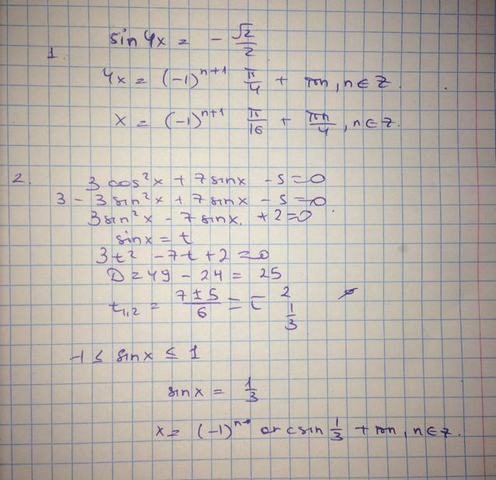 1. sin 4x = - √2/2
4x = (-1)^{n+1} π/4 + πn, n ∈ Z.
x = (-1)^{n+1} π/16 + πn/4, n ∈ Z.
2. 3 cos²x + 7 sin x - 5 = 0
3 - 3 sin²x + 7 sin x - 5 = 0
3 sin²x - 7 sin x + 2 = 0
sin x = t
3t² - 7t + 2 = 0
D = 49 - 24 = 25
t₁,₂ = (7 ± 5)/6 = [ 2 ø
1/3
-1 ≤ sin x ≤ 1
sin x = 1/3
x = (-1)^n arcsin 1/3 + πn, n ∈ Z.